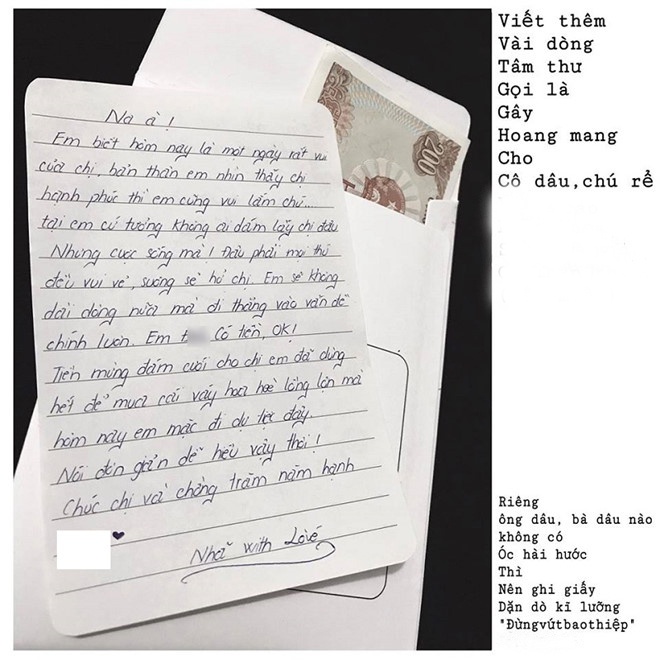 Na à!
Em biết hôm nay là một ngày rất vui
của chị, bản thân em nhìn thấy chị
hạnh phúc thì em cũng vui lắm chứ...
tại em cứ tưởng không ai dám lấy chị đâu
Nhưng cuộc sống mà! Đâu phải mọi thứ
đều vui vẻ, sướng sẽ hở chị. Em sẽ không
dài dòng nữa mà đi thẳng vào vấn đề
chính luôn. Em t Có tiền, OK!
Tiền mừng đám cưới cho chị em đã dùng
hết để mua cái váy hoa hoè lồng lộn mà
hôm nay em mặc đi dự tiệc đây.
Nói đơn giản dễ hiểu vậy thôi!
Chúc chị và chồng trăm năm hạnh
Nhã with Love
200
Viết thêm
Vài dòng
Tâm thư
Gọi là
Gây
Hoang mang
Cho
Cô dâu,chú rể
Riêng
ông dâu, bà dâu nào
không có
Óc hài hước
Thì
Nên ghi giấy
Dặn dò kĩ lưỡng
"Đừngvứtbaothiệp"